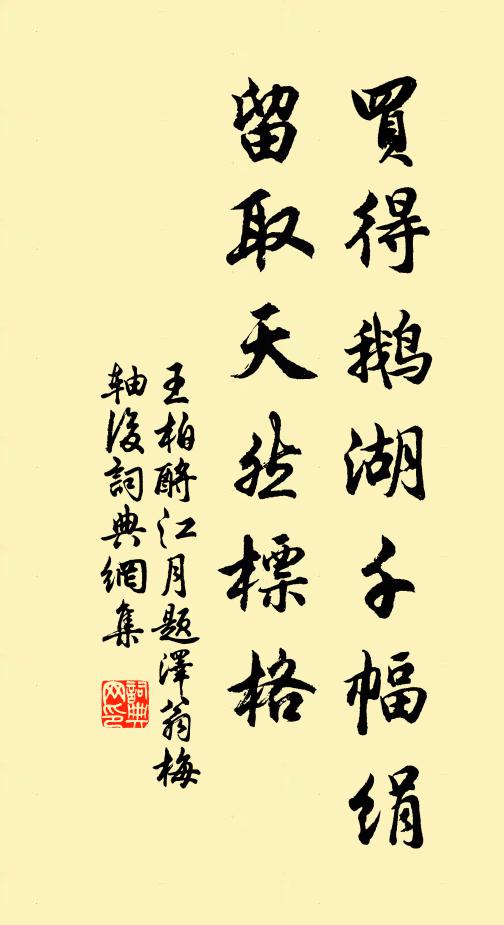 買得鹅湖千幅绢
留取天然標格
王柏酹江月题澤翁梅
轴後詞典網集
詞典网印